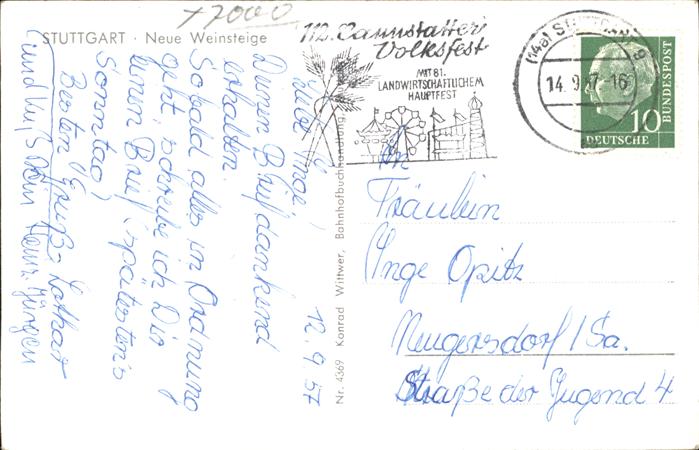 +7000
STUTTGART · Neue Weinsteige
12.9.57
Liebe Inge!
Deinen Brief dankend
erhalten
Sobald alles in Ordnung
geht, schreibe ich Dir
einen Brief, (spätestens
Sonntag)
Besten Gruß Lothar
(und Kuß) Dein Hans-Jürgen
Nr. 4369 Konrad Wittwer, Bahnhofbuchhandlung,
112. Cannstatter
Volksfest
MIT 81.
LANDWIRTSCHAFTLICHEM
HAUPTFEST
(14a) STUTTGART 9
14.9.57.-16
10
DEUTSCHE
BUNDESPOST
An
Fräulein
Inge Opitz
Neugersdorf/Sa.
Straße der Jugend 4